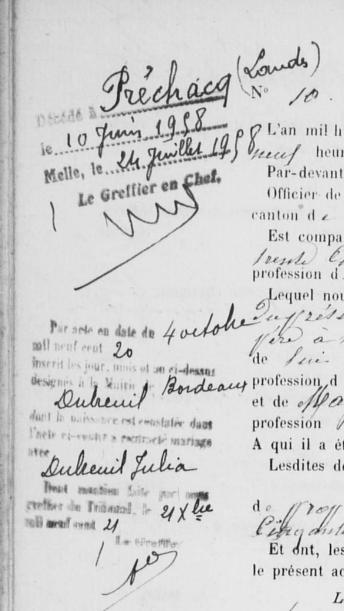 Décédé à Préchacq (Landes)
le 10 Juin 1958
Melle, le 24 Juillet 1958
Le Greffier en Chef,
Par acte en date du 4 octobre
mil neuf cent 20
inscrit les jour, mois et an ci-dessus
désignés à la Mairie de Bordeaux
Dubreuil
dont la naissance est constatée dans
l'acte ci-contre a contracté mariage
avec
Dubreuil Julia
Dont mention faite par nous
greffier du Tribunal, le 21 Xbre
mil neuf cent 21
Le Greffier
N° 10.
L'an mil h
neuf heur
Par-devant
Officier de
canton de
Est compa
trente
profession d
Lequel nou
de lui
profession d
et de Ma
profession
A qui il a ét
Lesdites de
de
Cinquant
Et ont, les
le présent ac
L